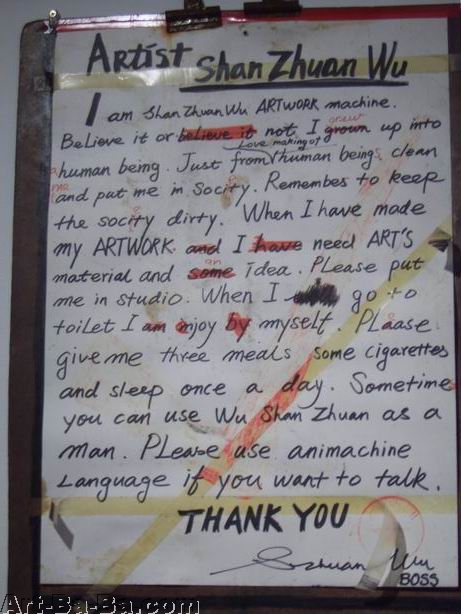 Artist Shan Zhuan Wu
I am Shan Zhuan Wu ARTWORK machine.
grew
Believe it or believe it not. I grown up into
Love making of
human being. Just from human beings clean
and put me in Socity. Remembes to keep
the socity dirty. When I have made
my ARTWORK and I have need ART'S
an
material and some idea. Please put
me in studio. When I go to
toilet I am mjoy by myself. PLaase
give me three meals some cigarettes
and sleep once a day. Sometime
you can use Wu Shan Zhuan as a
man. PLease use animachine
Language if you want to talk.
THANK YOU
Wu
BOSS
Art-Ba-Ba.com